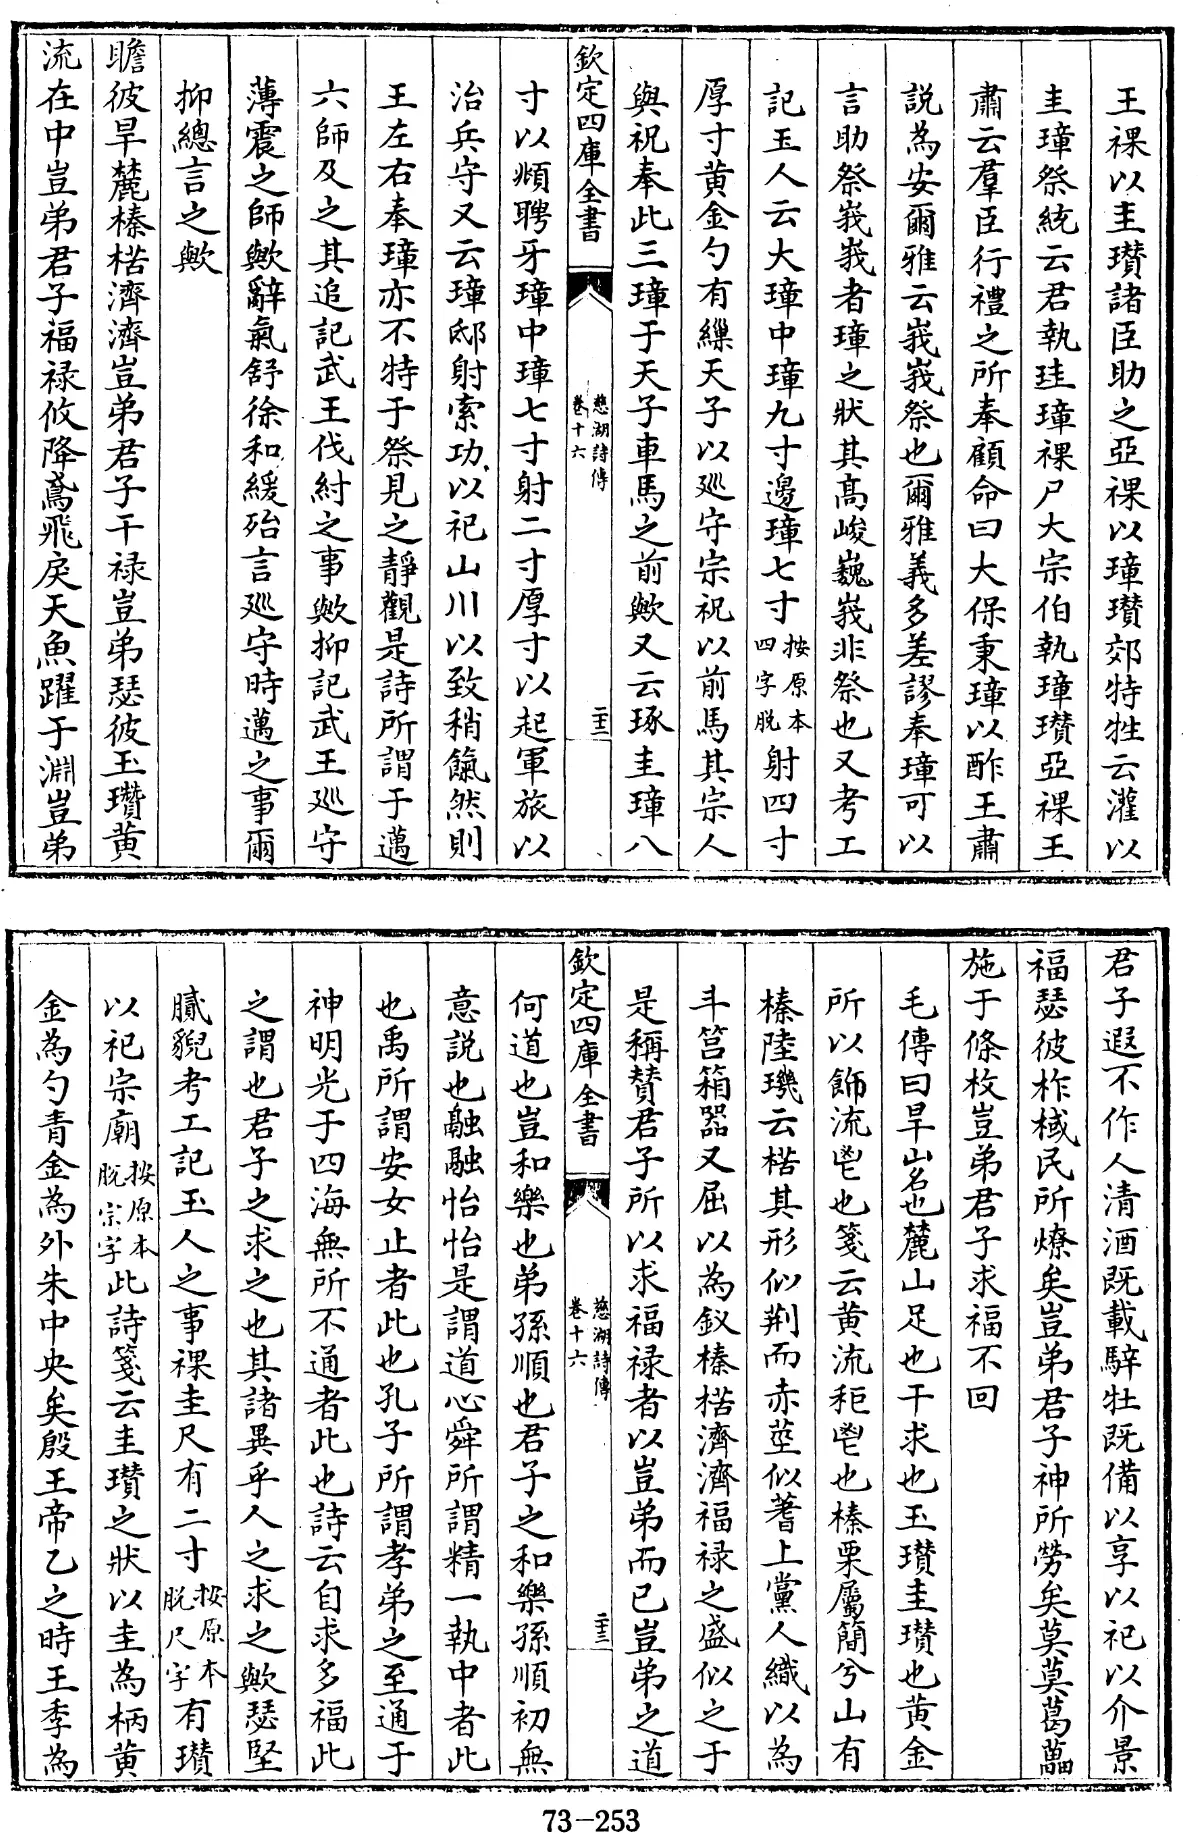 王祼以圭瓉諸臣助之亞祼以璋瓉郊特牲云灌以
圭璋祭統云君執圭璋祼尸大宗伯執璋瓉亞祼王
肅云羣臣行禮之所奉顧命曰大保秉璋以酢王肅
説為安爾雅云峩峩祭也爾雅義多差謬奉璋可以
言助祭峩峩者璋之狀其髙峻巍峩非祭也又考工
記玉人云大璋中璋九寸邊璋七寸按原本四字脱射四寸
厚寸黄金勺有繅天子以廵守宗祝以前馬其宗人
與祝奉此三璋于天子車馬之前歟又云琢圭璋八
欽定四庫全書
慈湖詩傳
卷十六
二十二
寸以頫聘牙璋中璋七寸射二寸厚寸以起軍旅以
治兵守又云璋邸射素功以祀山川以致稍餼然則
王左右奉璋亦不特于祭見之靜觀是詩所謂于邁
六師及之其追記武王伐紂之事歟抑記武王廵守
薄震之師歟辭氣舒徐和緩殆言廵守時邁之事爾
抑總言之歟
瞻彼旱麓榛楛濟濟豈弟君子干禄豈弟瑟彼玉瓉黄
流在中豈弟君子福禄攸降鳶飛戾天魚躍于淵豈弟
君子遐不作人清酒既載騂牡既備以享以祀以介景
福瑟彼柞棫民所燎矣豈弟君子神所勞矣莫莫葛藟
施于條枚豈弟君子求福不回
毛傳曰旱山名也麓山足也干求也玉瓉圭瓉也黄金
所以飾流鬯也箋云黄流秬鬯也榛栗屬簡兮山有
榛陸璣云楛其形似荆而赤莖似蓍上黨人織以為
斗筥箱器又屈以為釵榛楛濟濟福禄之盛似之于
是稱賛君子所以求福禄者以豈弟而已豈弟之道
欽定四庫全書
慈湖詩傳
卷十六
二十三
何道也豈和樂也弟孫順也君子之和樂孫順初無
意説也融融怡怡是謂道心舜所謂精一執中者此
也禹所謂安女止者此也孔子所謂孝弟之至通于
神明光于四海無所不通者此也詩云自求多福此
之謂也君子之求之也其諸異乎人之求之歟瑟堅
膩貎考工記玉人之事祼圭尺有二寸按原本脱尺字有瓉
以祀宗廟按原本脱宗字此詩箋云圭瓉之狀以圭為柄黄
金為勺青金為外朱中央矣殷王帝乙之時王季為
73-253